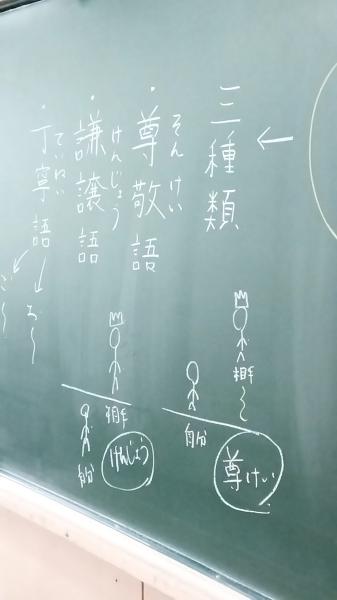 三種類
・尊敬語
そんけい
・謙譲語
けんじょう
・丁寧語
ていねい
お〜
ご〜
相手
自分
尊けい
相手
自分
けんじょう